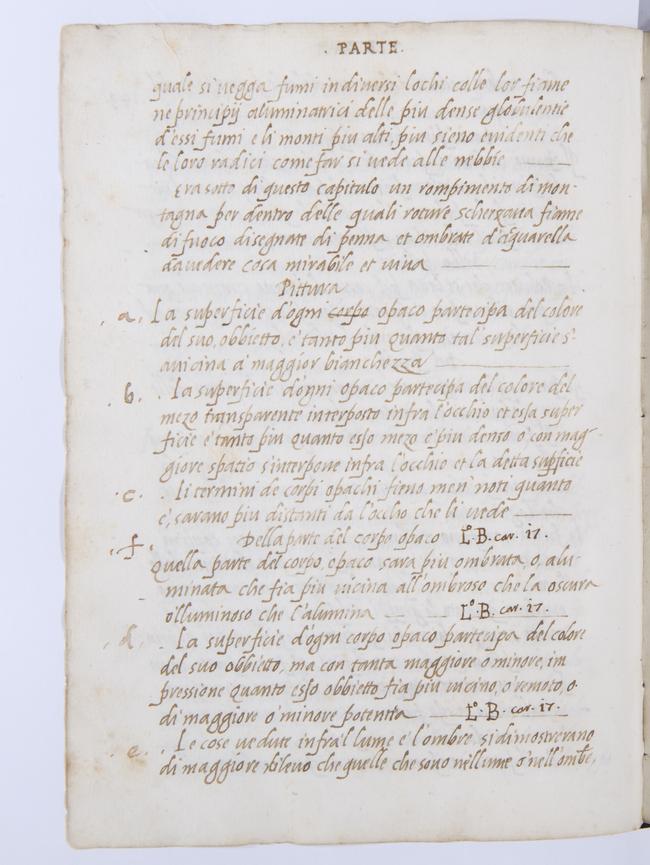 . PARTE .
quale si uegga fumi in diuersi lochi colle lor fiame
ne principij aluminatrici delle piu dense globulentie
d'essi fumi e li monti piu alti, piu sieno euidenti che
le loro radici come far si uede alle nebbie
Era sotto di questo capitulo un rompimento di mon-
tagna per dentro delle quali roture schergaua fiame
di fuoco disegnate di penna et ombrate d'acquarella
da uedere cosa mirabile et uiua
Pittura
. a . La superficie d'ogni corpo opaco partecipa del colore
del suo, obbietto, e tanto piu quanto tal superficie s'
auicina a maggior bianchezza
. b . . La superficie d'ogni opaco partecipa del colore del
mezo transparente interposto infra l'occhio et essa super
ficie e tanto piu quanto esso mezo e piu denso o con mag-
giore spatio s'interpone infra l'occhio et la detta supficie
. c . . Li termini de corpi opachi fieno men' noti quanto
e', sarano piu distanti da l'occhio che li uede
Della parte del corpo opaco L.o B. car. 17.
. f . Quella parte del corpo, opaco sara piu ombrata, o, alu-
minata che fia piu uicina all'ombroso che la oscura
o'lluminoso che l'alumina L.o B. car. 17.
. d . . La superficie d'ogni corpo opaco partecipa del colore
del suo obbietto, ma con tanta maggiore o minore, im
pressione quanto esso obbietto fia piu uicino, o remoto, o.
di maggiore o minore potentia L.o B. car. 17.
. e . . Le cose uedute infra'l lume e l'ombre, si dimostrerano
di maggiore rileuo che quelle che sono nel lume o nell'ombre,